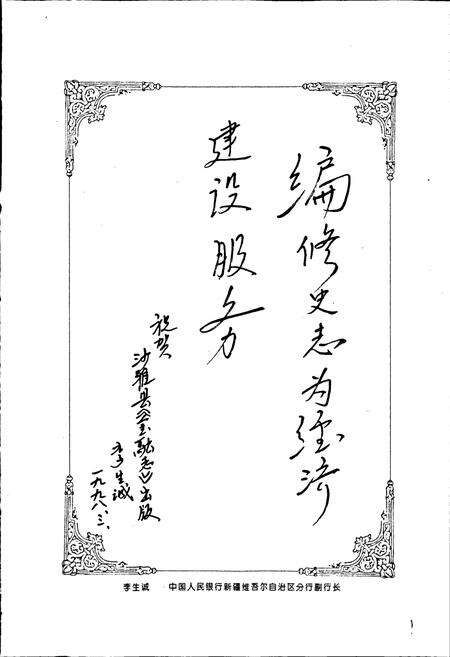 编修史志为经济
建设服务
祝贺
沙雅县《金融志》出版
李生诚
一九九八.三.
李生诚 中国人民银行新疆维吾尔自治区分行副行长
1